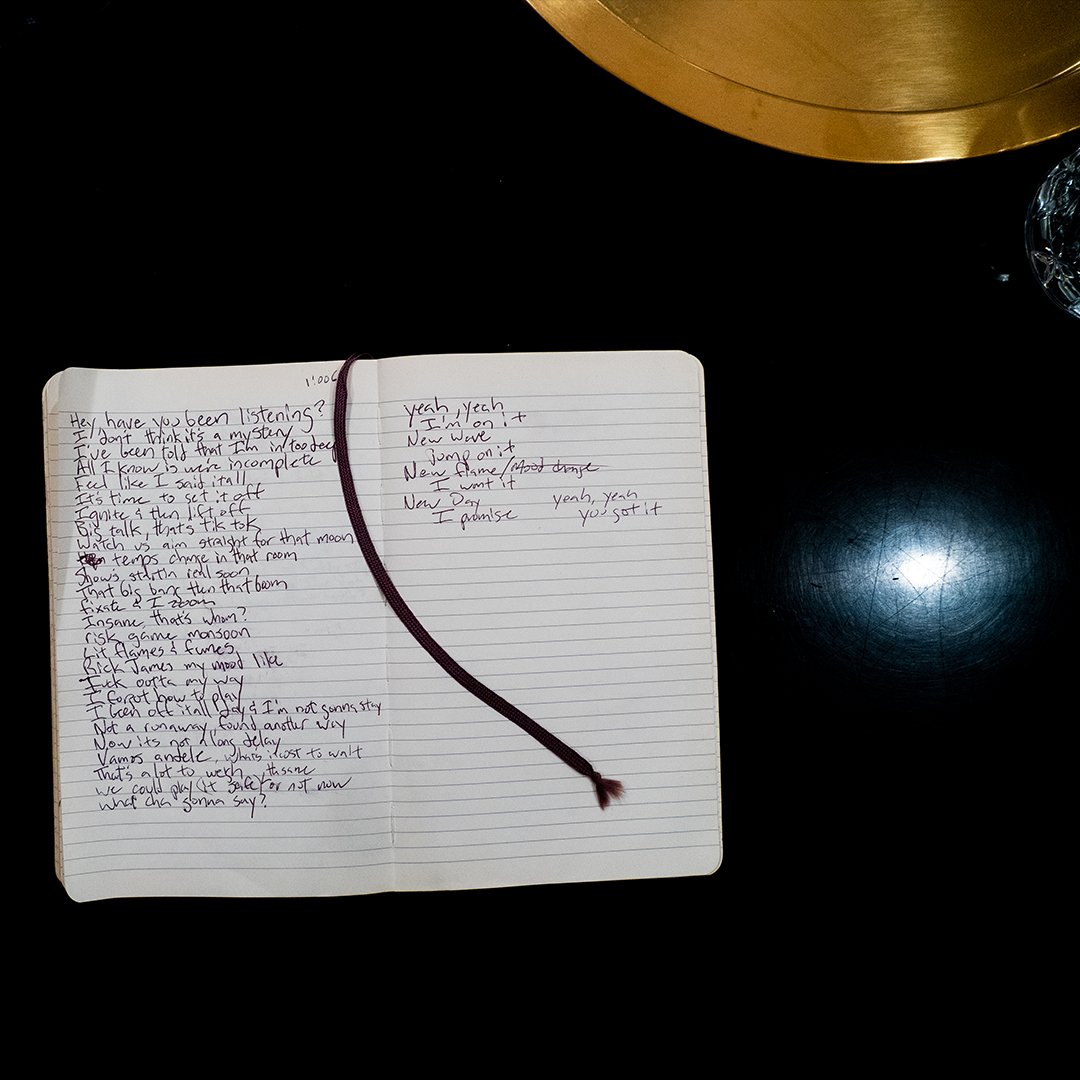 Hey, have you been listening?
I don't think it's a mystery
I've been told that I'm in too deep
All I know is we're incomplete
Feel like I said it all
It's time to set it off
Ignite & then lift off
Big talk, that's tik tok
Watch us aim straight for that moon
temps change in that room
Shows startin real soon
That big bang then that boom
fixate & I zoom
Insane, that's whom?
risk, game monsoon
Lit flames & fumes
Rick James my mood like
Fuck outta my way
I forgot how to play
I been off it all day & I'm not gonna stay
Not a runaway, found another way
Now its not a long delay
Vamos andele, whats it cost to wait
That's a lot to weigh,
we could play it safe or not now
what cha gonna say?
yeah, yeah
I'm on it
New wave
Jump on it
New flame/mood change
I want it
New Day
I promise
yeah, yeah
you got it